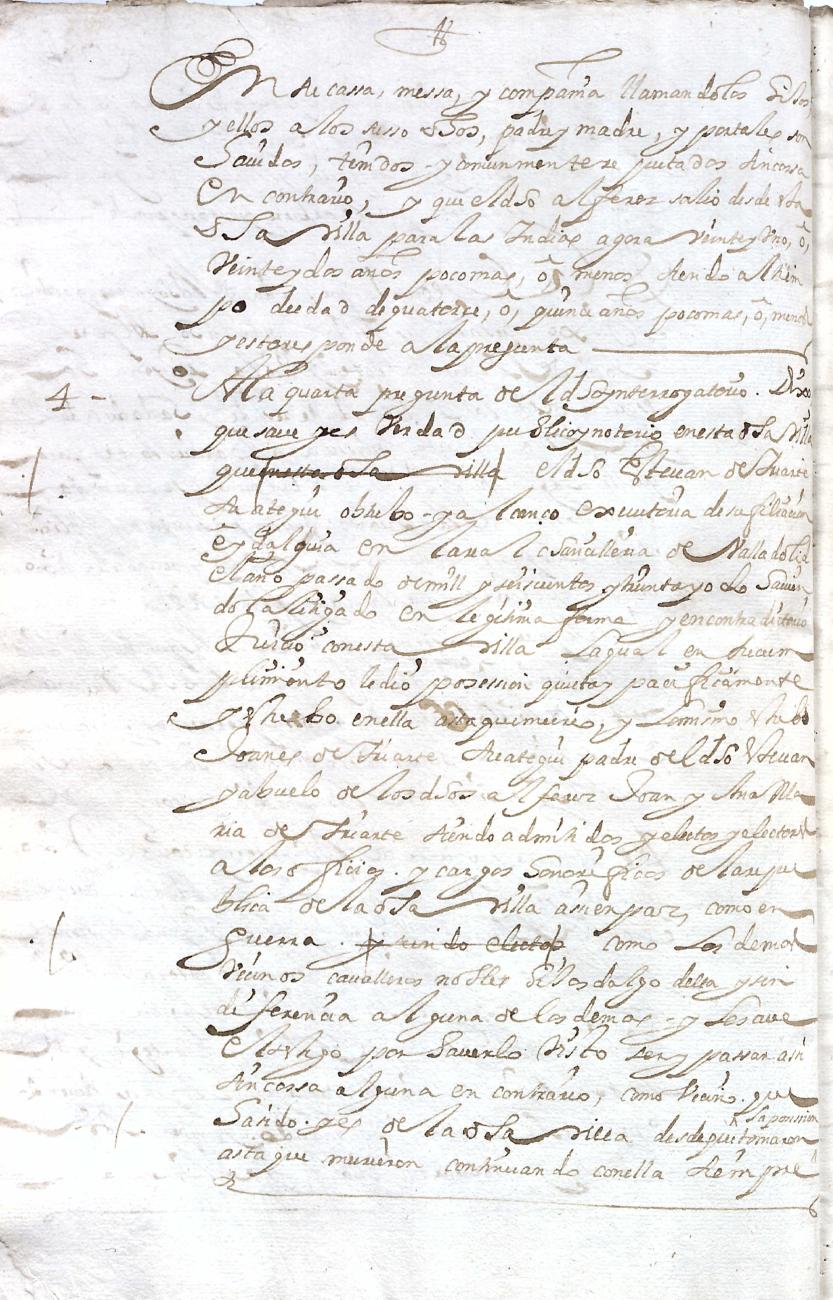 En su cassa, messa, y compania llamandolos hijos,
y ellos a los susso dhos, padre y madre, y por tales son
havidos, tenidos y comunmente reputados sin cossa
en contrario, y que el dho alferez salio desde
dha villa para las Indias agora veinte y uno, o,
veinte y dos años poco mas, o, menos siendo al tiem
po de edad de quatorce, o, quince años poco mas, o, menos
y esto responde a la pregunta
4 - A la quarta pregunta del dho ynterrogatorio. Dixo
que save y es verdad publico y notorio en esta dha villa
que en esta dha villa el dho Estevan de Iriarte
obtubo y alcanço executoria de su filiacion
e ydalguia en la real chancilleria de Valladolid
el año passado de mill y seiscientos y treinta y ocho havien
do la litigado en legitima forma y en contradictorio
Juicio con esta villa la qual en su cum
plimiento le dio posession quieta y pacificamente
y estubo en ella asta que murio, y lo mismo estubo
Joanes de Iriarte padre del dho Estevan
y abuelo de los dhos alferez Joan y Ana Ma
ria de Iriarte siendo admitidos y electos y electores
a los officios y cargos honorificos de la repu
blica de la dha villa asi en paz, como en
guerra. y siendo electos como los demas
vecinos cavalleros nobles hijos dalgo della y sin
diferencia alguna de los demas - y lo save
el testigo por haverlo visto ser y passar asi
sin cossa alguna en contrario, como vecino que
ha sido y es de la dha villa desde que tomaron la posession
asta que murieron continuando con ella siempre